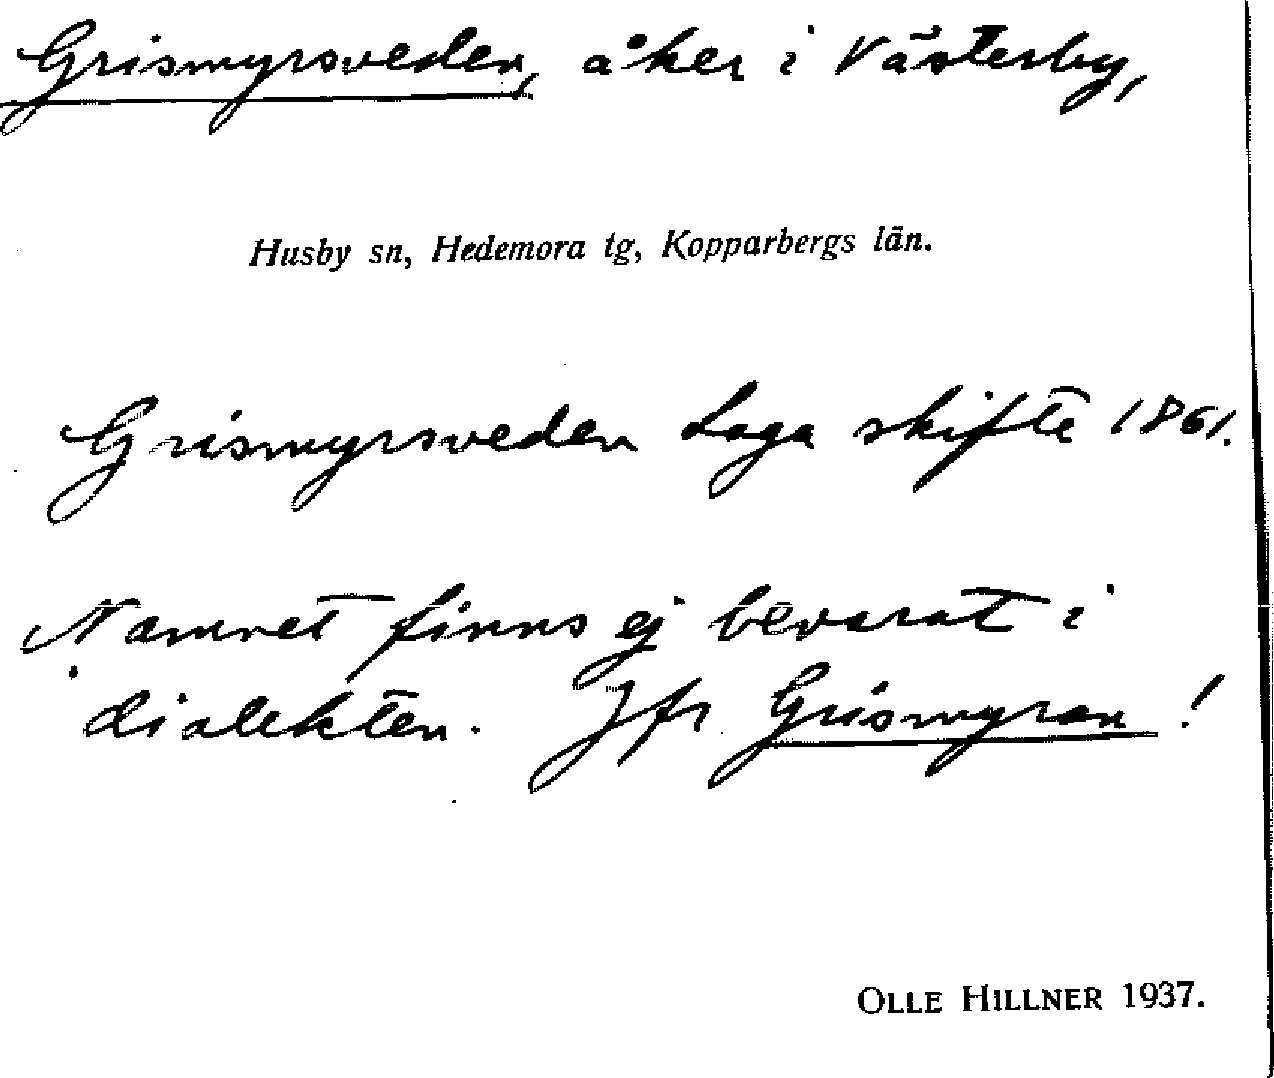 Grismyrsveden, åker i Västerby,
Husby sn, Hedemora tg, Kopparbergs län.
Grismyrsveden Laga skifte 1861.
Namnet finns ej bevarat i
dialekten. Jfr Grismyran!
OLLE HILLNER 1937.